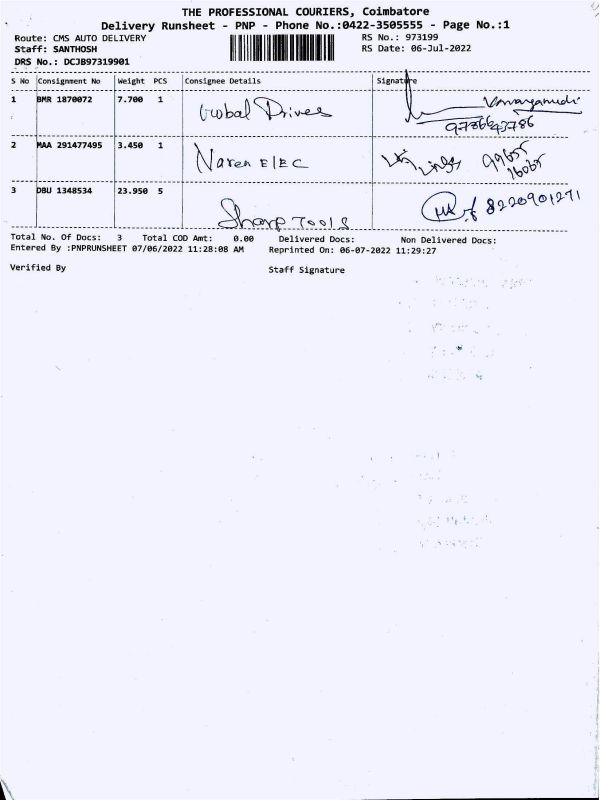 THE PROFESSIONAL COURIERS, Coimbatore
Delivery Runsheet - PNP - Phone No.:0422-3505555 - Page No.:1
Route: CMS AUTO DELIVERY RS No.: 973199
Staff: SANTHOSH RS Date: 06-Jul-2022
DRS No.: DCJB97319901
S No Consignment No Weight PCS Consignee Details Signature
1 BMR 1870072 7.700 1 Global Drives
9786643786
2 MAA 291477495 3.450 1 Naren ELEC 99655
16065
3 DBU 1348534 23.950 5 Sharp TOOLS 8220901271
Total No. Of Docs: 3 Total COD Amt: 0.00 Delivered Docs: Non Delivered Docs:
Entered By :PNPRUNSHEET 07/06/2022 11:28:08 AM Reprinted On: 06-07-2022 11:29:27
Verified By Staff Signature